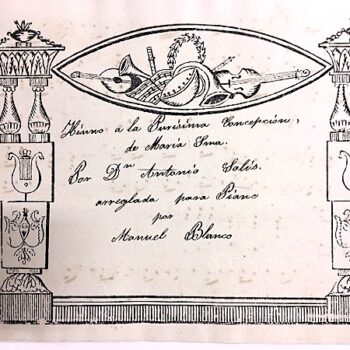 Hinno á la Purísima Concepción,
de María Sma.
Por Dn Antonio Solís.
arreglada para Piano
por
Manuel Blanco